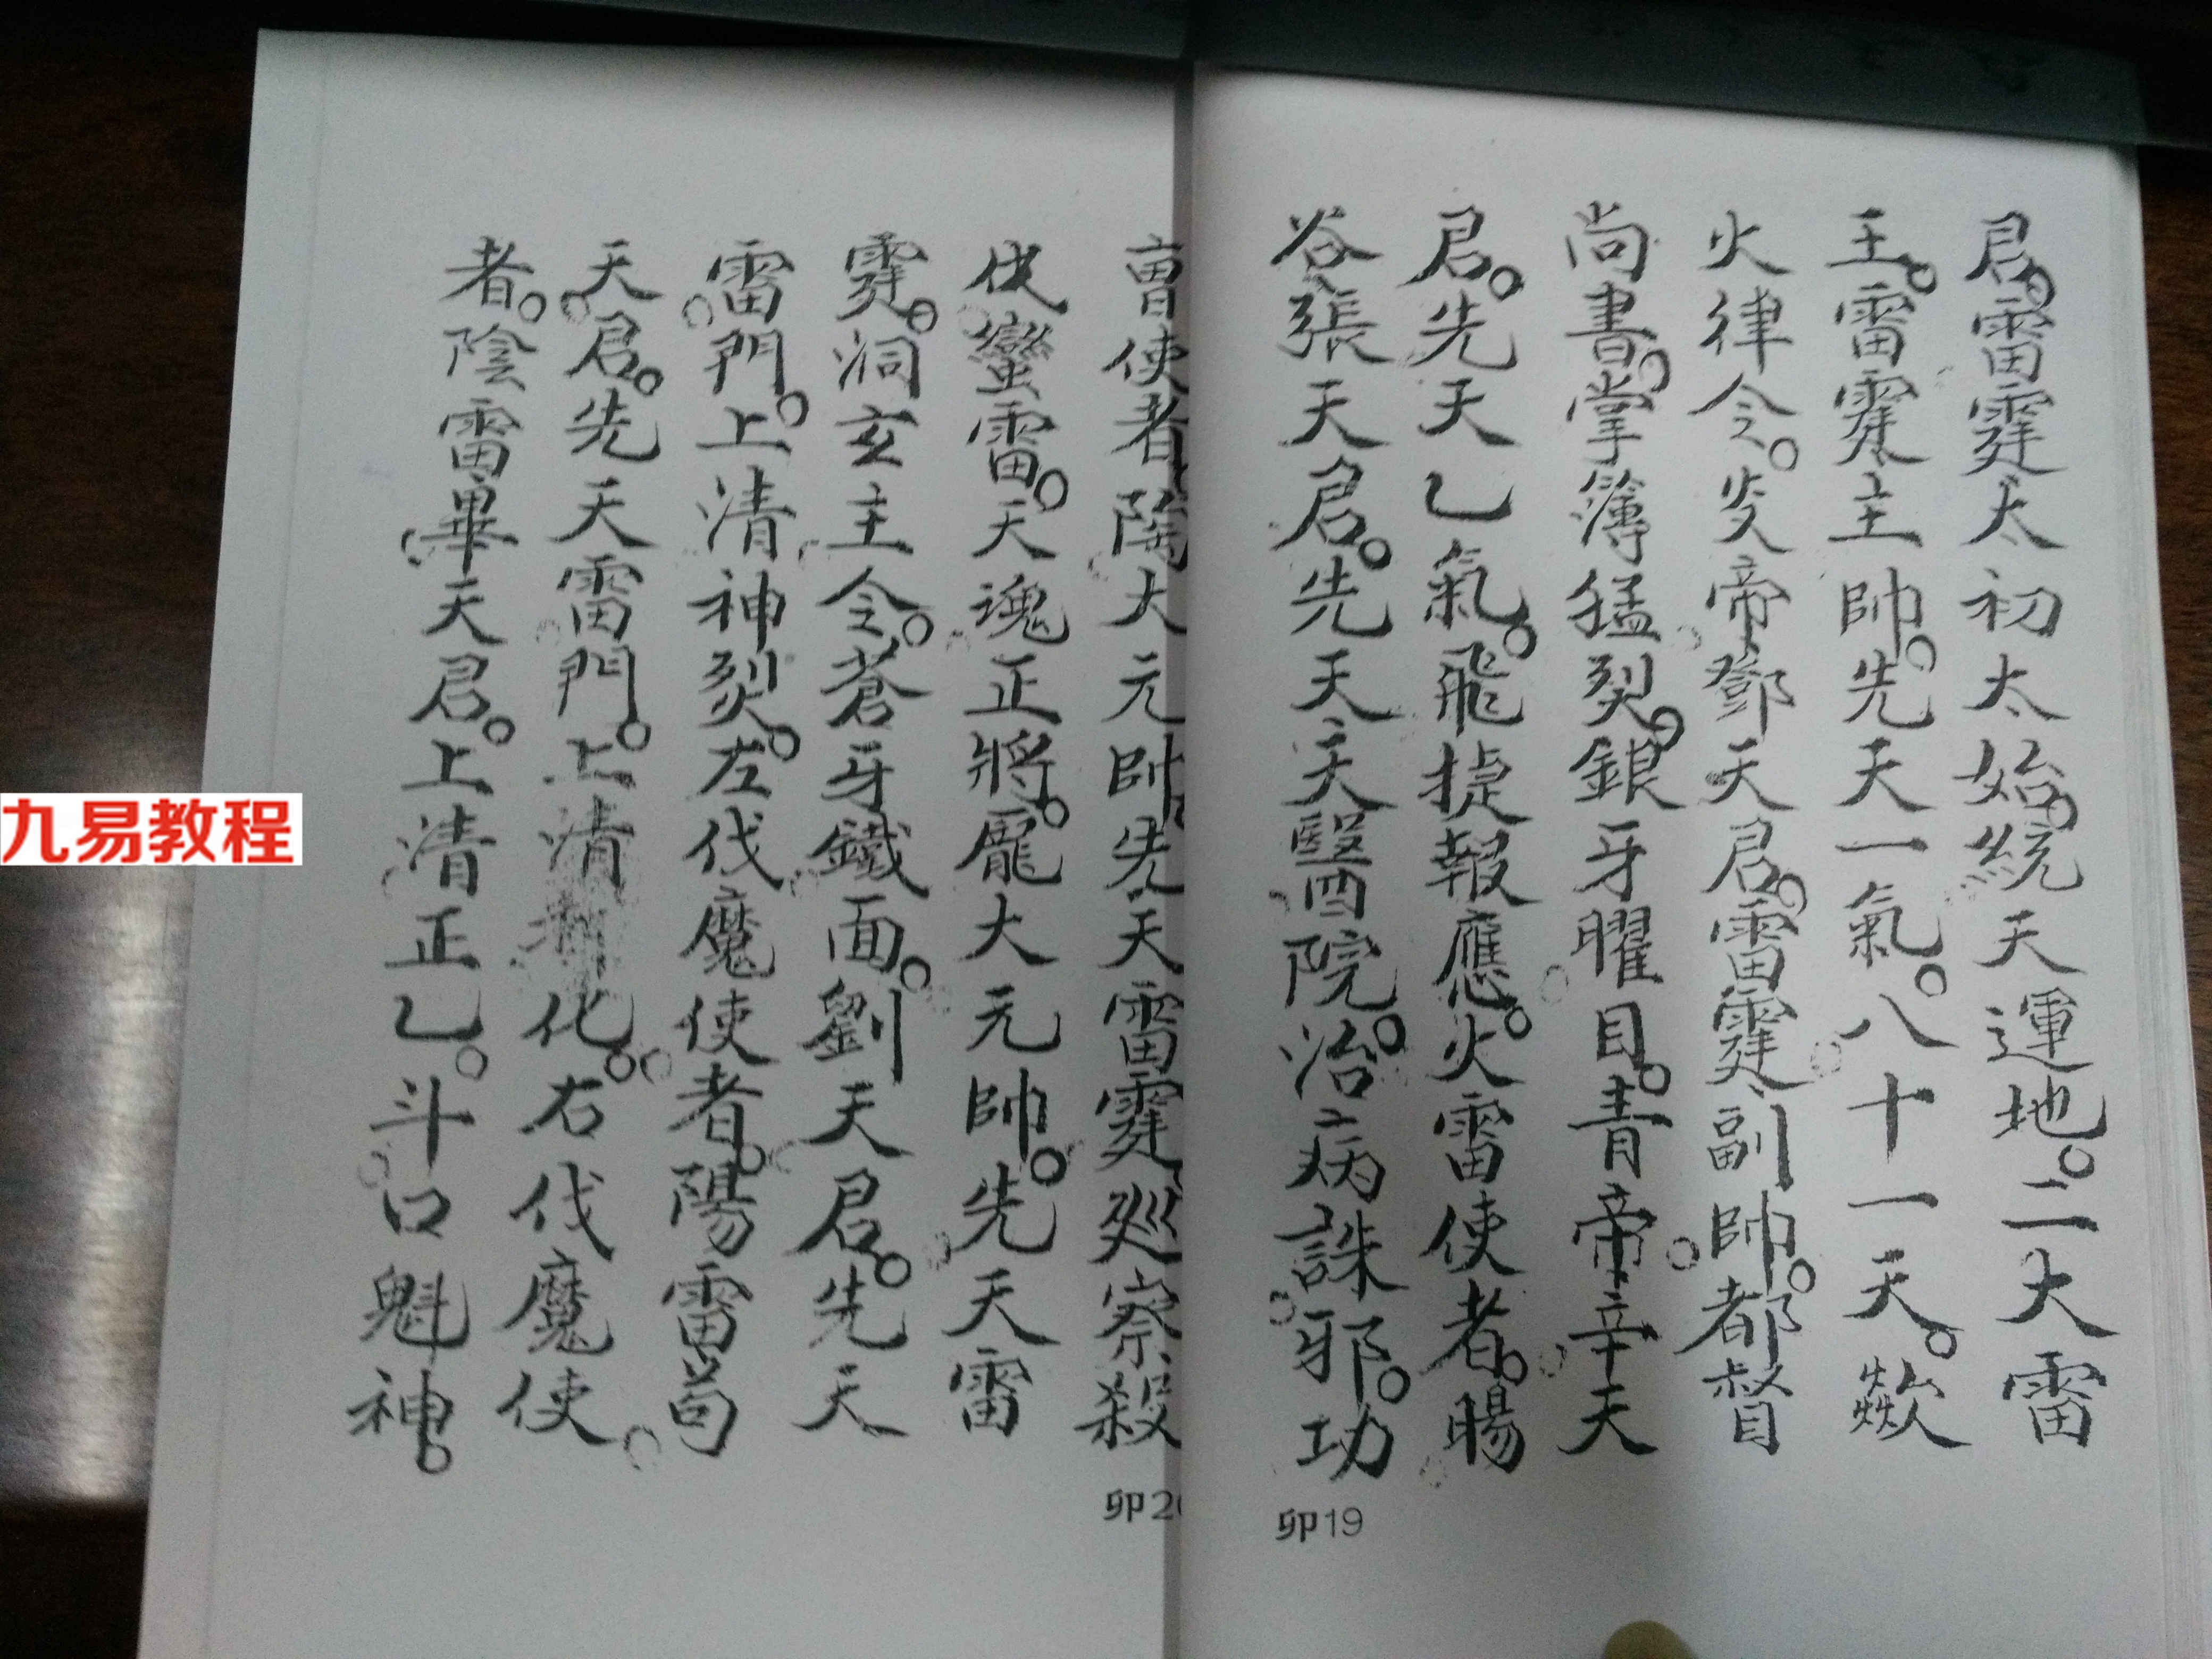 君。雷霆太初太始。統天運地。二大雷
主。雷霆主帥。先天一氣。八十一天。歘
火律令。炎帝鄧天君。雷霆副帥。都督
尚書。掌簿猛烈。銀牙曜目。青帝辛天
君。先天乙氣。飛捷報應。火雷使者。暘
谷張天君。先天天醫院。治病誅邪。功
卯19
曹使者。陶大元帥。先天雷霆廵察殺
伐蠻雷。天魂正將。龐大元帥。先天雷
霆。洞玄主令。蒼牙鐵面。劉天君。先天
雷門。上清神烈。左伐魔使者。陽雷苟
天君。先天雷門。上清 化。右伐魔使
者。陰雷畢天君。上清正乙。斗口魁神。
卯20
九易教程